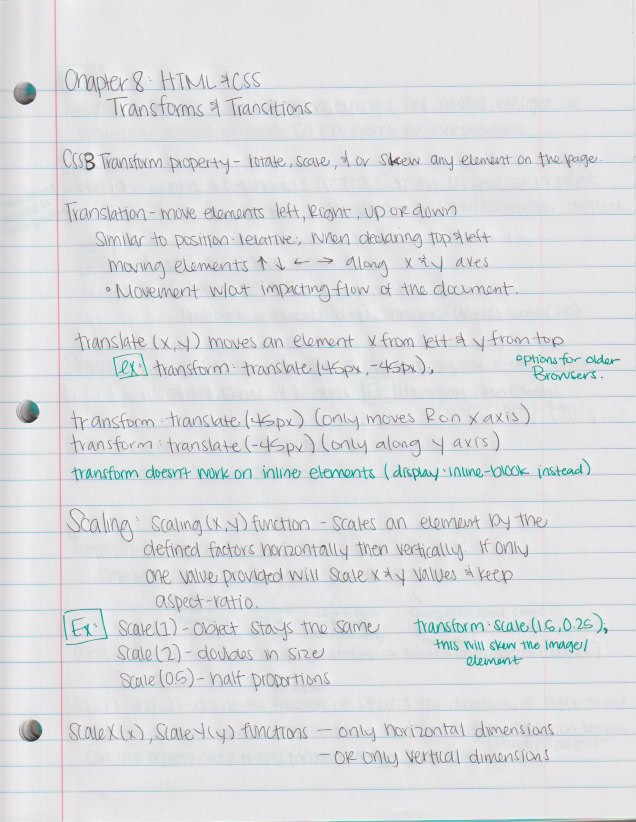 Chapter 8: HTML & CSS
Transforms & Transitions
CSS3 Transform property - rotate, scale, & or skew any element on the page.
Translation - move elements left, Right, up or down
Similar to position: relative; when declaring top & left
moving elements ↑ ↓ ← → along x & y axes
• Movement w/out impacting flow of the document.
translate (x, y) moves an element x from left & y from top
ex: transform: translate (45px, -45px);
options for older
Browsers.
transform: translate (45px) (only moves R on x axis)
transform: translate (-45px) (only along y axis)
transform doesn't work on inline elements (display: inline-block instead)
Scaling: Scaling (x, y) function - scales an element by the
defined factors horizontally then vertically. If only
one value provided will scale x & y values & keep
aspect-ratio.
Ex: Scale (1) - object stays the same
Scale (2) - doubles in size
Scale (0.5) - half proportions
transform: scale (1.5, 0.25);
this will skew the image/
element
ScaleX(x), ScaleY(y) functions - only horizontal dimensions
- OR only vertical dimensions